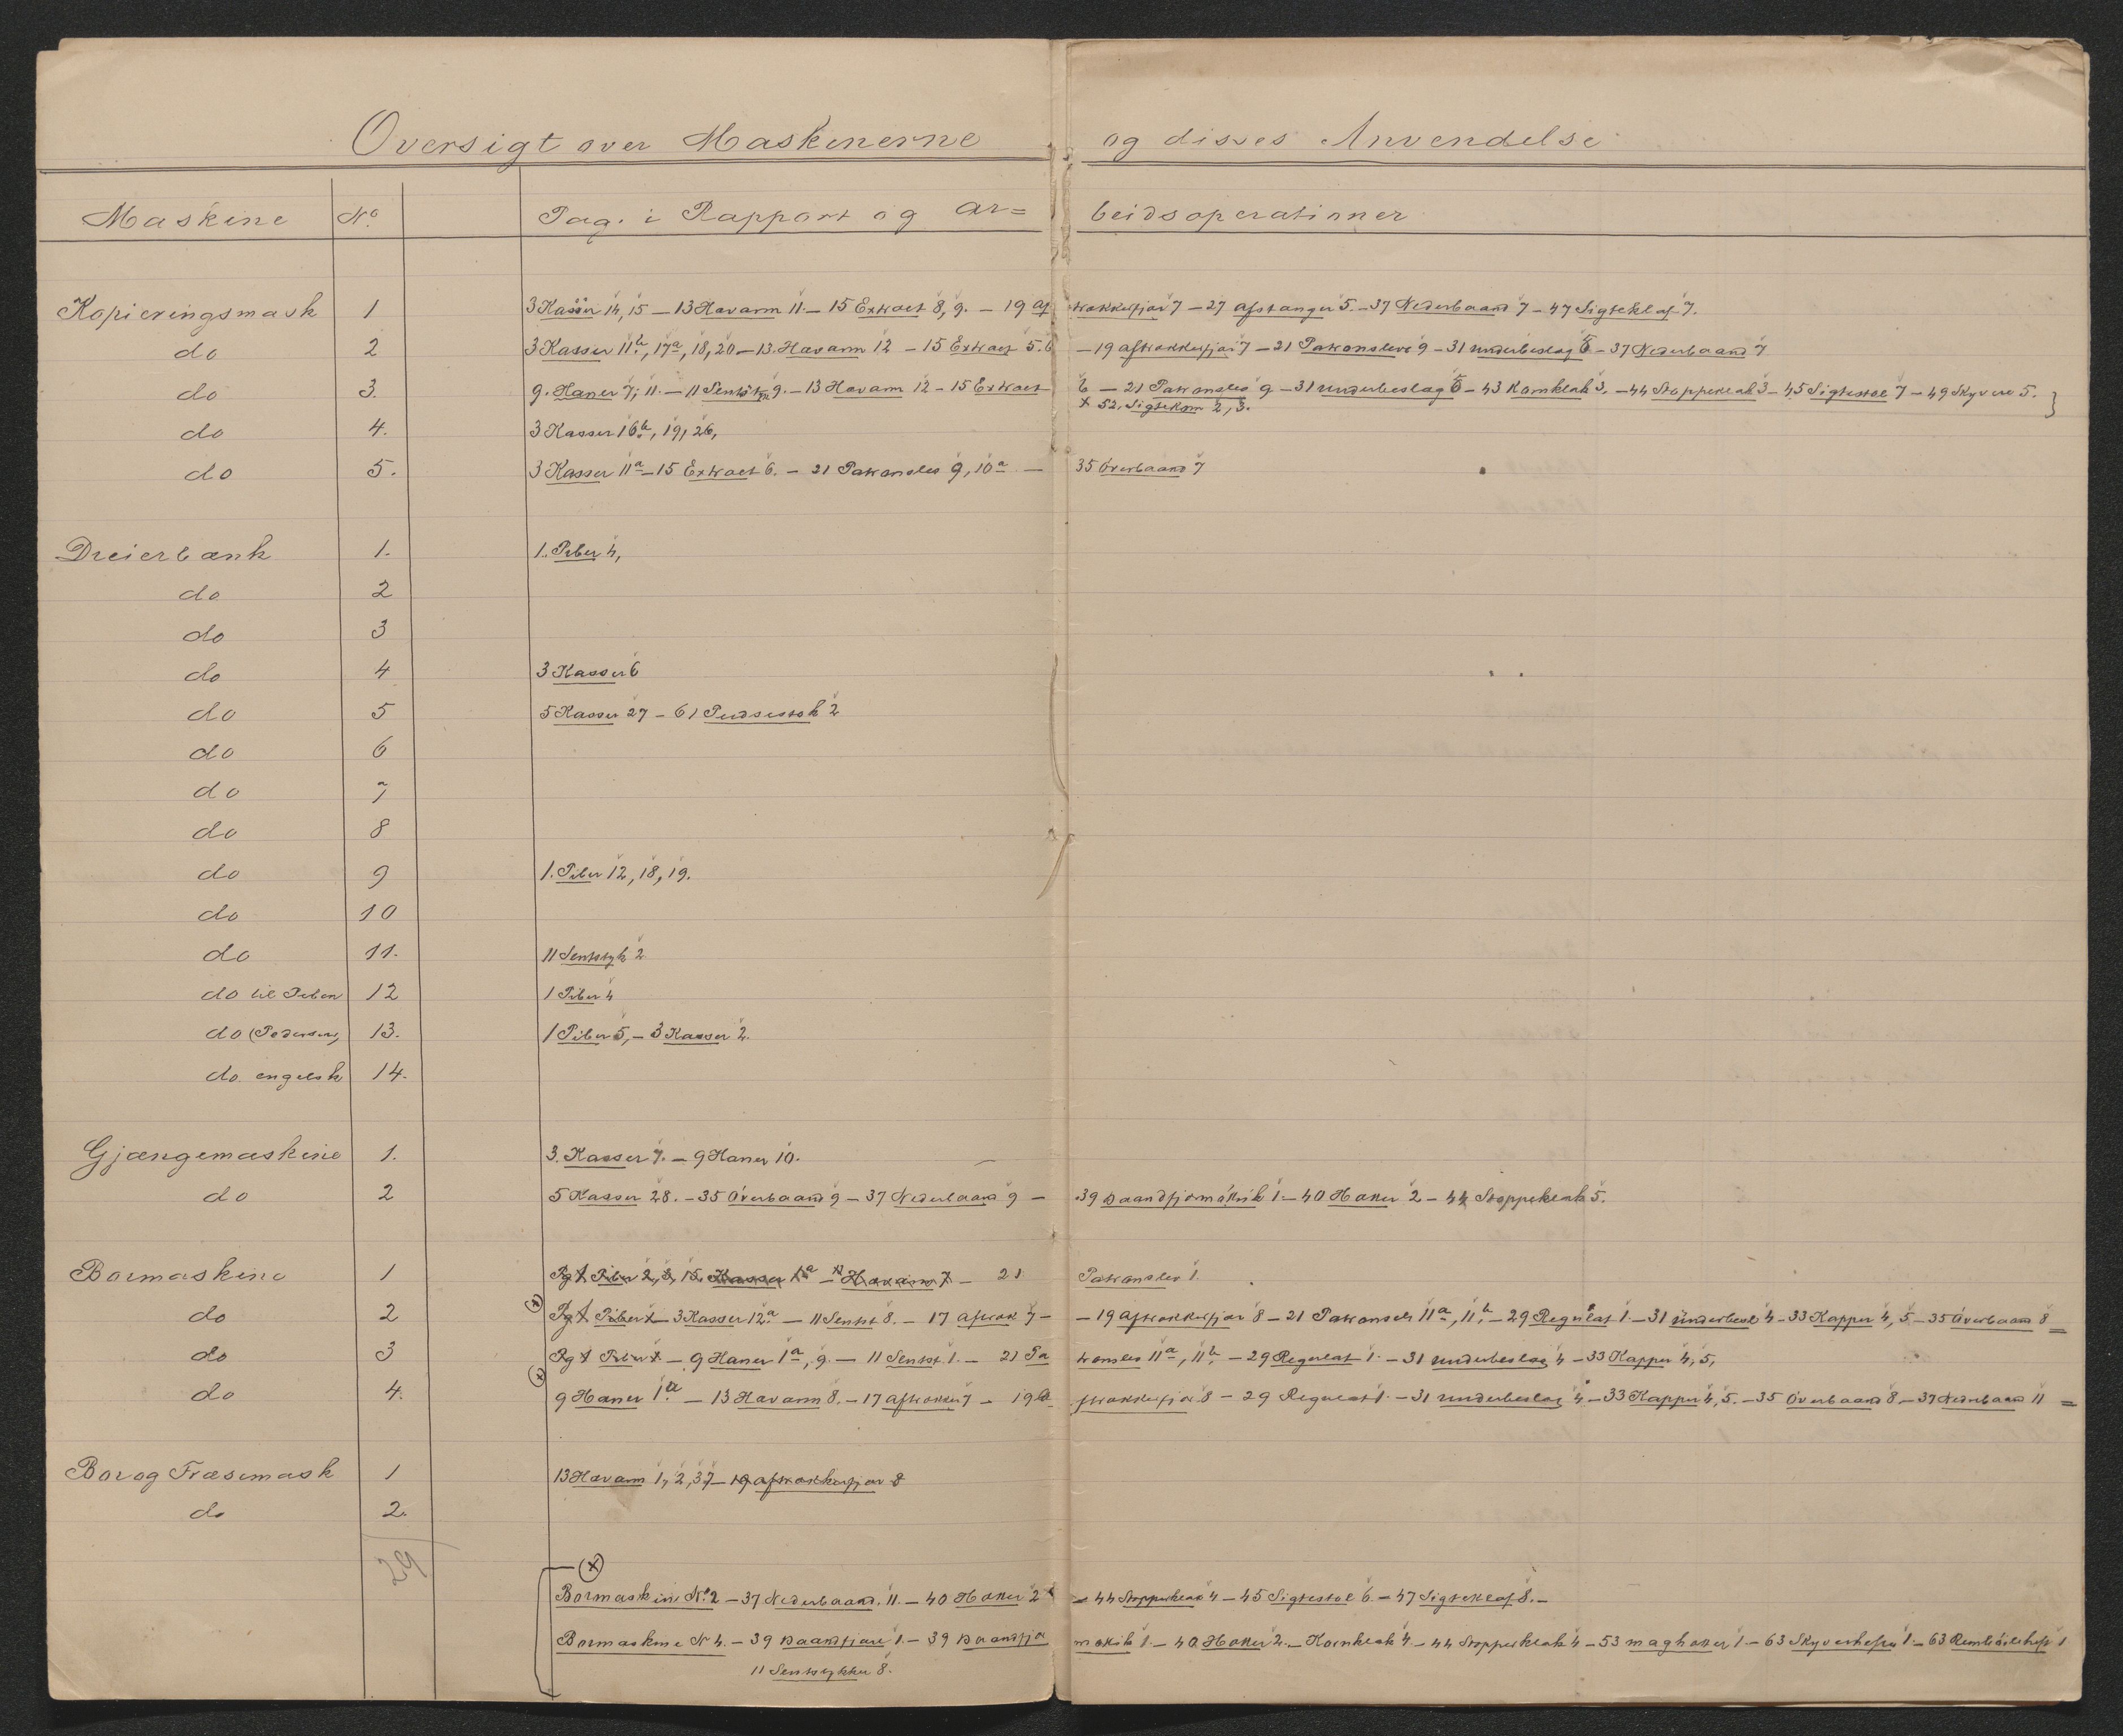 Oversigt over Maskinerne og disses Anvendelse
Maskine No. Pag. i Rapport og Ar= beidsoperationer
Kopieringsmask 1 3 Kasser 14, 15 – 13 Havarm 11. – 15 Extract 8, 9. – 19 Af trækkerfjær 7 – 27 Afstanger 5. – 37 Nederbaand 7 – 47 Sigteklaf 7.
do 2 3 Kasser 11b, 17a, 18, 20 – 13. Havarm 12 – 15 Extract 5. 6 – 19 Aftrækkerfjær 7 – 21 Patronsleve 9 – 31 Underbeslag 6 – 37 Nederbaand 7
do 3. 9. Haner 7, 11. – 11 9. – 13 Havarm 12 – 15 Extract 6 – 21 Patronsles 9 – 31 Underbeslag 6 – 43 Kornklak 3. – 44 Stoppeklak 3 – 45 Sigtestol 7 – 49 Skyvere 5. }
x 52. 2, 3.
do 4. 3 Kasser 16b, 19, 26,
do 5. 3 Kasser 11a – 15 Extract 6. – 21 Patronsles 9, 10a – 35 Overbaand 7
Dreierbænk 1. 1. Piber 4,
do 2
do 3
do 4 3 Kasser 6
do 5 5 Kasser 27 – 61 Pudsestok 2
do 6
do 7
do 8
do 9 1. Piber 12, 18, 19.
do 10
do 11. 11 Sentstyk 2
do til Piben 12 1 Piber 4
do (Pedersen) 13. 1 Piber 5, – 3 Kasser 2.
do. engelsk 14.
Gjængemaskine 1. 3. Kasser 7. – 9 Haner 10.
do 2 5 Kasser 28. – 35 Overbaand 9 – 37 Nederbaand 9 – 39 1. – 40 Haker 2 – 44 Stoppeklak 5.
Bormaskine 1 Pg 1 Piber 2, 8, 15. Kasser 1a – Havarm 7 – 21 Patronslev 1.
do 2 (x) Pg 1 Piber 1 – 3 Kasser 12a – 11 Sentst 8. – 17 Aftræk 7 – – 19 Aftrækkerfjær 8 – 21 Patronsels 11a, 11b – 29 Regulat 1. – 31 Underbesl 4 – 33 Kapper 4, 5 – 35 Overbaand 8 =
do 3 Pg 1 Piber 1 – 9 Haner 1a, 9. – 11 Sentst 1. – 21 Pa tronsles 11a, 11b – 29 Regulat 1. – 31 Underbeslag 4 – 33 Kapper 4, 5,
do 4. (x) 9 Haner 1a – 13 Havarm 8. – 17 Aftrækker 7 – 19 A ftrækkerfjær 8 – 29 Regulat 1. – 31 Underbeslag 4. – 33 Kapper 4, 5. – 35 Overbaand 8 – 37 Nederbaand 11 =
Bor og Fræsemask 1 13 Havarm 1, 2, 3, 7 – 19 Aftrækkerfjær 8
do 2.
29
(x)
Bormaskine No 2 – 37 Nederbaand. 11. – 40 Haker 2 – 44 Stoppeklak 4 – 45 Sigtestol 6. – 47 Sigteklaf 8. –
Bormaskine N 4. – 39 Baandfjære 1. – 39 Baandfjæ 1. – 40 Haker 2. – Kornklak 4 – 44 Stopperklak 4 – 53 1. – 63 1. – 63 1
11 Sentstykker 8.